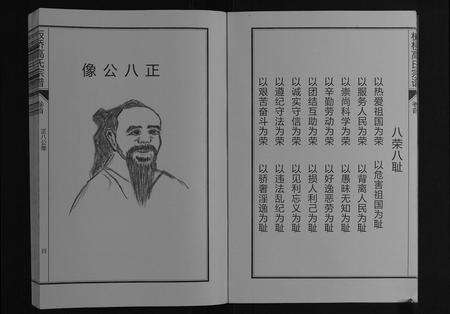 八荣八耻
以热爱祖国为荣 以危害祖国为耻
以服务人民为荣 以背离人民为耻
以崇尚科学为荣 以愚昧无知为耻
以辛勤劳动为荣 以好逸恶劳为耻
以团结互助为荣 以损人利己为耻
以诚实守信为荣 以见利忘义为耻
以遵纪守法为荣 以违法乱纪为耻
以艰苦奋斗为荣 以骄奢淫逸为耻
正八公像